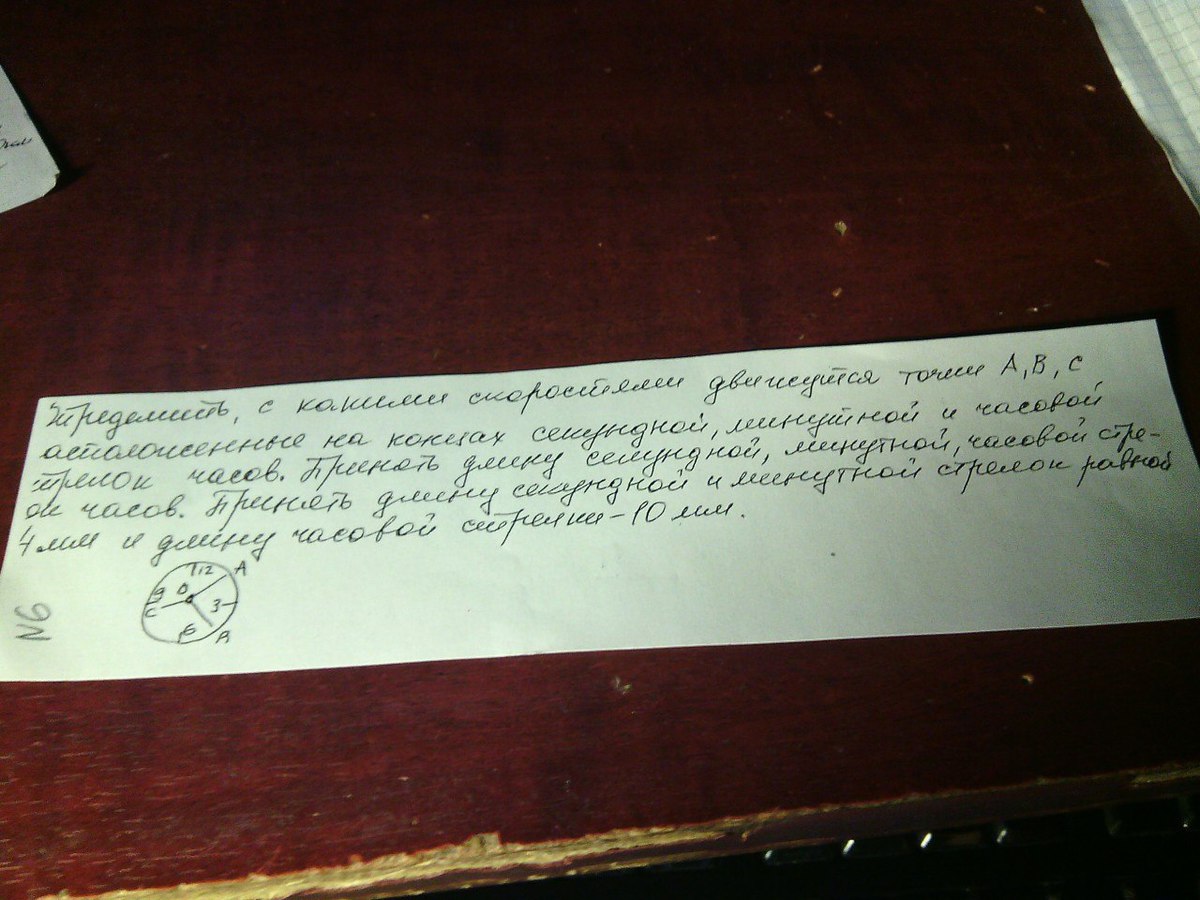 пределить, с какими скоростями движутся точки A, B, C
асположенные на концах секундной, минутной и часовой
трелок часов. Принять длину секундной, минутной, часовой стре-
ок часов. Принять длину секундной и минутной стрелок равной
4 мм и длину часовой стрелки - 10 мм.
12 A
9 O
C 3
6 B
N6